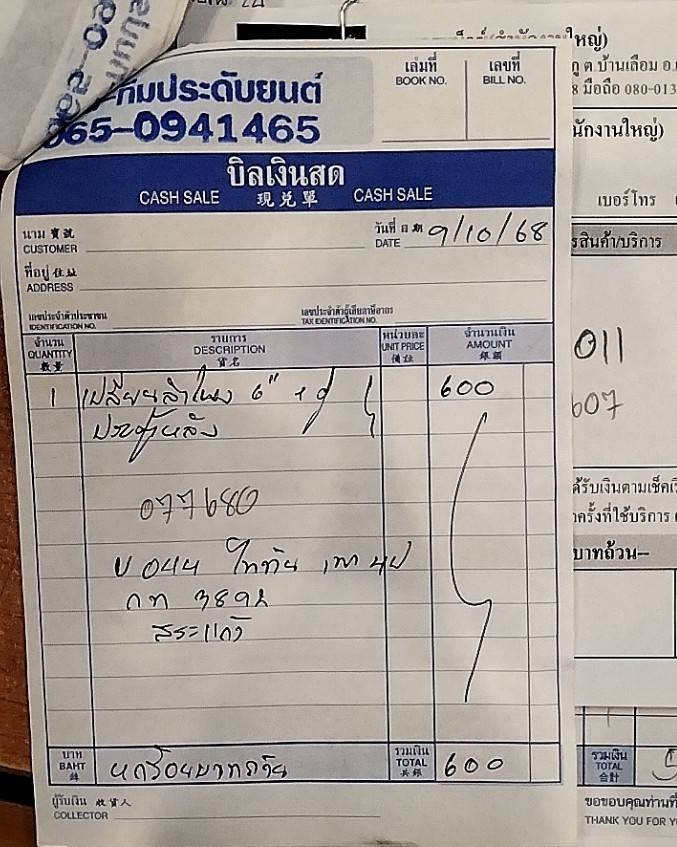 ทีมประดับยนต์
065-0941465
เล่มที่
BOOK NO.
เลขที่
BILL NO.
บิลเงินสด
CASH SALE 現兌單 CASH SALE
นาม 寶號
CUSTOMER
วันที่ 日期
DATE
9/10/68
ที่อยู่ 住址
ADDRESS
เลขประจำตัวประชาชน
IDENTIFICATION NO.
เลขประจำตัวผู้เสียภาษีอากร
TAX IDENTIFICATION NO.
จำนวน
QUANTITY
數量
รายการ
DESCRIPTION
貨名
หน่วยละ
UNIT PRICE
備註
จำนวนเงิน
AMOUNT
銀額
1 เปลี่ยนลำโพง 6" 1 คู่ 600
ประตูหลัง
077680
044
กท 3892
สระแก้ว
บาท
BAHT
銖
หกร้อยบาทถ้วน
รวมเงิน
TOTAL
共銀
600
ผู้รับเงิน 收貨人
COLLECTOR
ใหญ่)
ต.บ้านเลื่อม อ.
8 มือถือ 080-013
นักงานใหญ่)
เบอร์โทร
รสินค้า/บริการ
011
607
ด้รับเงินตามเช็คเ
าครั้งที่ใช้บริการ
บาทถ้วน--
รวมเงิน
TOTAL
合計
ขอขอบคุณท่านที่
THANK YOU FOR Y